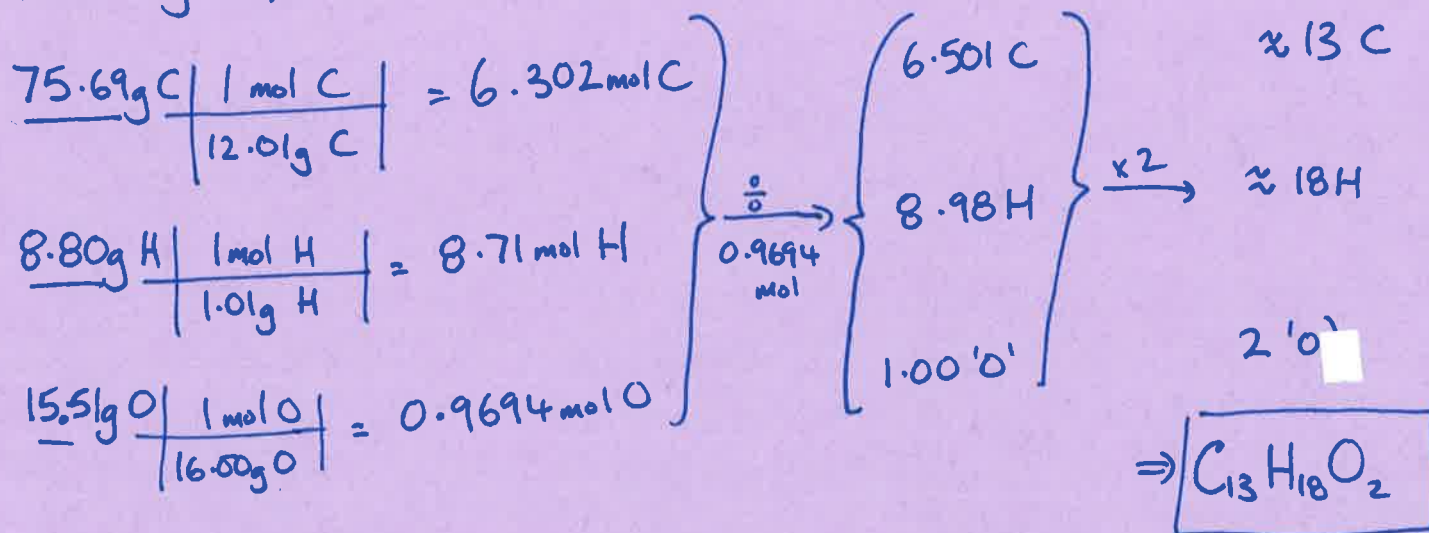 75.69g C | 1 mol C / 12.01g C | = 6.302 mol C
8.80g H | 1 mol H / 1.01g H | = 8.71 mol H
15.51g O | 1 mol O / 16.00g O | = 0.9694 mol O
÷
0.9694
mol
6.501 C
8.98 H
1.00 'O'
x2
≈ 13 C
≈ 18H
2 'O'
⇒ C₁₃H₁₈O₂